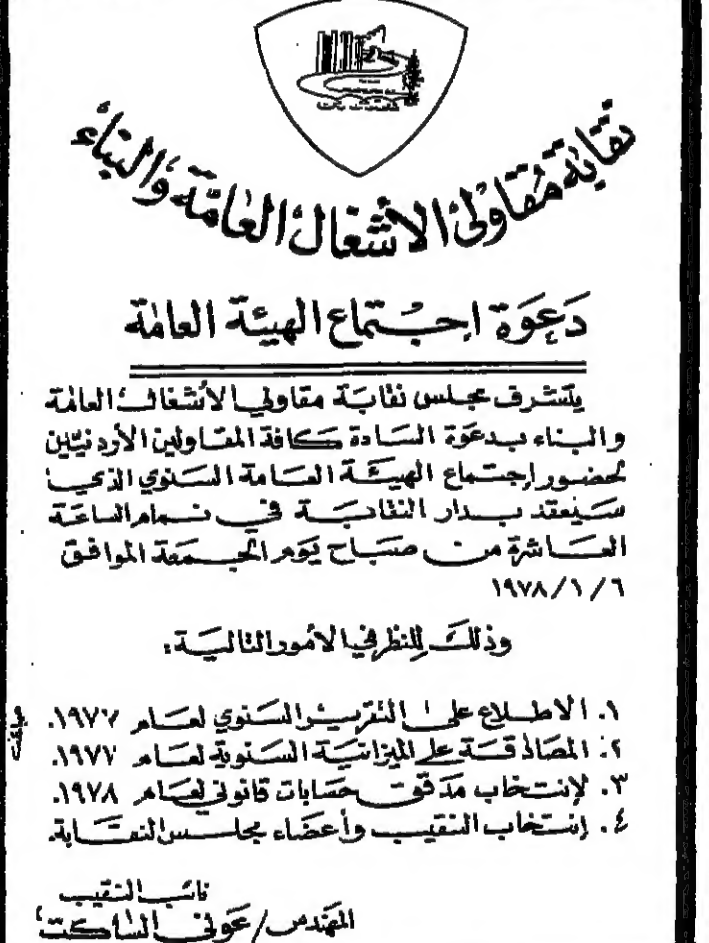 نقابة مقاولي الأشغال العامة والبناء
دعوة اجتماع الهيئة العامة
يتشرف مجلس نقابة مقاولي الأشغال العامة
والبناء بدعوة السادة كافة المقاولين الأردنيين
لحضور إجتماع الهيئة العامة السنوي الذي
سينعقد بدار النقابة في تمام الساعة
العاشرة من صباح يوم الجمعة الموافق
١٩٧٨/١/٦
وذلك للنظر في الأمور التالية:
١. الاطلاع على التقرير السنوي لعام ١٩٧٧.
٢. المصادقة على الميزانية السنوية لعام ١٩٧٧.
٣. لإنتخاب مدقق حسابات قانوني لعام ١٩٧٨.
٤. إنتخاب النقيب وأعضاء مجلس النقابة.
نائب النقيب
المهندس/عوني الساكت